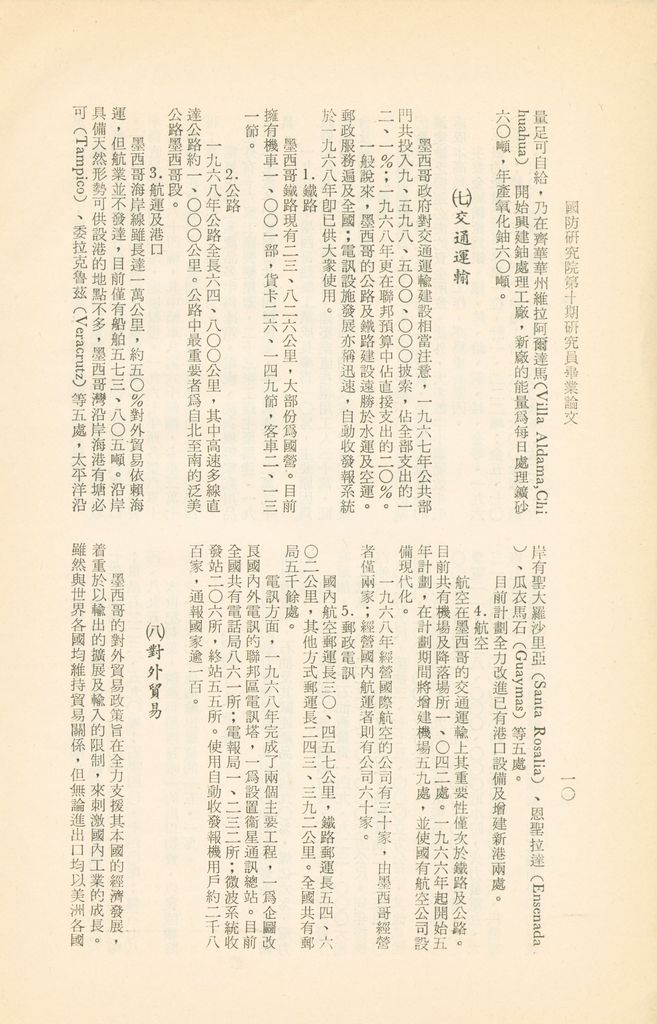 國防研究院第十期研究員畢業論文
一〇
量足可自給，乃在齊華華州維拉阿爾達馬(Villa Aldama, Chi
huahua) 開始興建鈾處理工廠，新廠的能量爲每日處理鑛砂
六〇噸，年產氧化鈾六〇噸。
㈦交通運輸
墨西哥政府對交通運輸建設相當注意，一九六七年公共部
門共投入九、五九八、五〇〇、〇〇〇披索，佔全部支出的一
二、一%；一九六八年更在聯邦預算中佔直接支出的二〇%。
一般說來，墨西哥的公路及鐵路建設遠勝於水運及空運。
郵政服務遍及全國；電訊設施發展亦稱迅速，自動收發報系統
於一九六八年卽已供大衆使用。
1.鐵路
墨西哥鐵路現有二三、八二六公里，大部份爲國營。目前
擁有機車一、〇〇一部，貨卡二六、一四九節，客車二、一三
一節。
2.公路
一九六八年公路全長六四、八〇〇公里，其中高速多線直
達公路約一、〇〇〇公里。公路中最重要者爲自北至南的泛美
公路墨西哥段。
3.航運及港口
墨西哥海岸線雖長達一萬公里，約五〇%對外貿易依賴海
運，但航業並不發達，目前僅有船舶五七三、八〇五噸。沿岸
具備天然形勢可供設港的地點不多，墨西哥灣沿岸海港有塘必
可（Tampico）、委拉克魯茲（Veracrutz）等五處，太平洋沿
岸有聖大羅沙里亞（Santa Rosalia）、恩聖拉達（Ensenada
）、瓜衣馬石（Guaymas）等五處。
目前計劃全力改進已有港口設備及增建新港兩處。
4.航空
航空在墨西哥的交通運輸上其重要性僅次於鐵路及公路。
目前共有機場及降落場所一、〇四二處。一九六六年起開始五
年計劃，在計劃期間將增建機場五九處，並使國有航空公司設
備現代化。
一九六八年經營國際航空的公司有三十家，由墨西哥經營
者僅兩家；經營國內航運者則有公司六十家。
5.郵政電訊
國內航空郵運長三〇、四五七公里，鐵路郵運長五四、六
〇二公里，其他方式郵運長二四三、三九二公里。全國共有郵
局五千餘處。
電訊方面，一九六八年完成了兩個主要工程，一爲企圖改
良國內外電訊的聯邦區電訊塔，一爲設置衛星通訊總站。目前
全國共有電話局八六一所；電報局一、二三二所；微波系統收
發站二〇六所，終站五五所。使用自動收發報機用戶約二千八
百家，通報國家逾一百。
㈧對外貿易
墨西哥的對外貿易政策旨在全力支援其本國的經濟發展，
着重於以輸出的擴展及輸入的限制，來刺激國內工業的成長。
雖然與世界各國均維持貿易關係，但無論進出口均以美洲各國